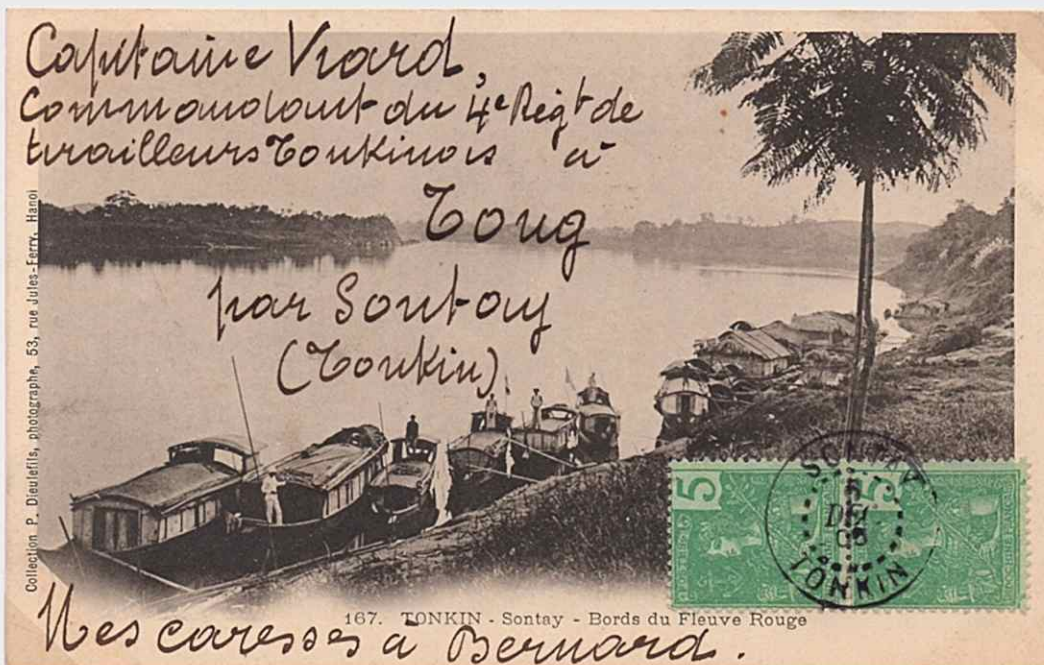 Capitaine Viard,
Commandant du 4e Régt de
tirailleurs Tonkinois à
Tong
par Sontay
(Tonkin)
Collection P. Dieulefils, photographe, 53, rue Jules-Ferry, Hanoi
5
5
SONTAY
5
DEC
TONKIN
167. TONKIN - Sontay - Bords du Fleuve Rouge
Mes caresses à Bernard.